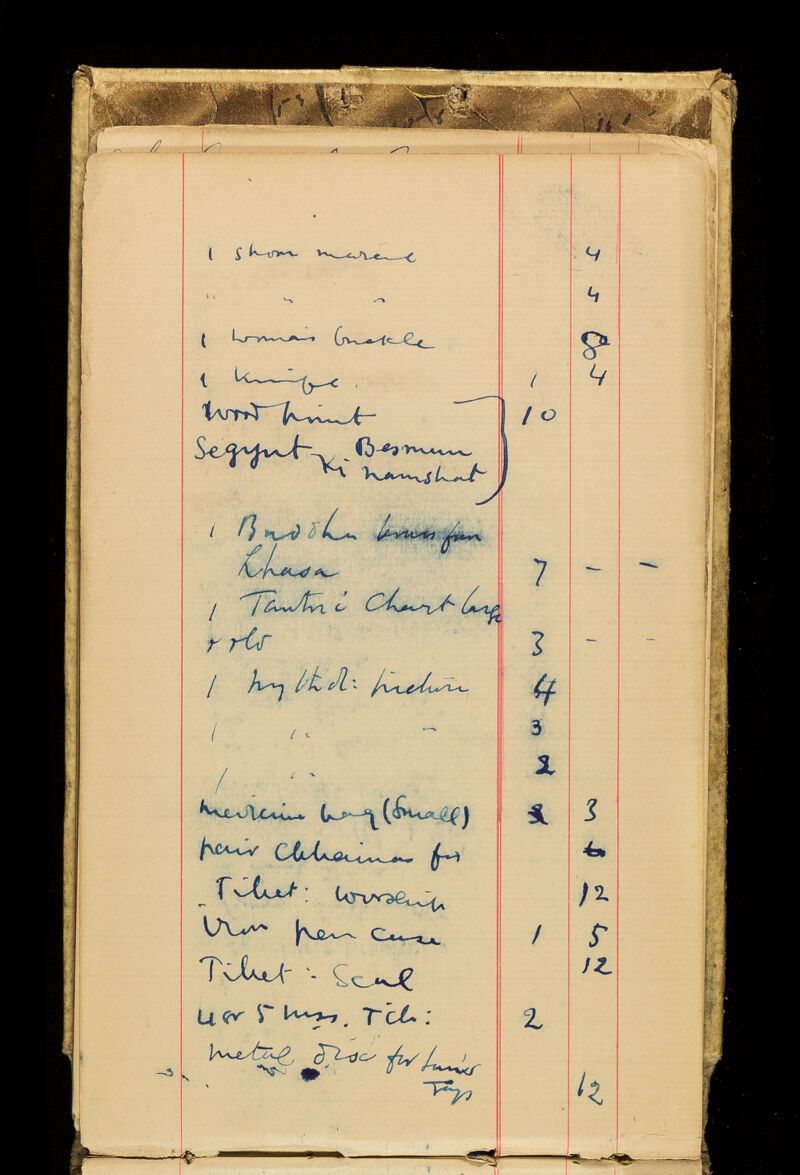 1 4
" " " 4
1 woman's buckle 8
1 Knife. 1 4
wood print 10
Segyut Besmun
Ki namshat
1 Buddha
Lhasa 7 - -
1 Tantric Chart large
+ old 3 - -
1 mythol: picture 4
1 " " 3
1 " 2
medicine bag (small) 3
pair for
Tibet: worship 12
Iron pen case 1 5
Tibet: Seal 12
4 or 5 mss. Tib: 2
metal disc for
12